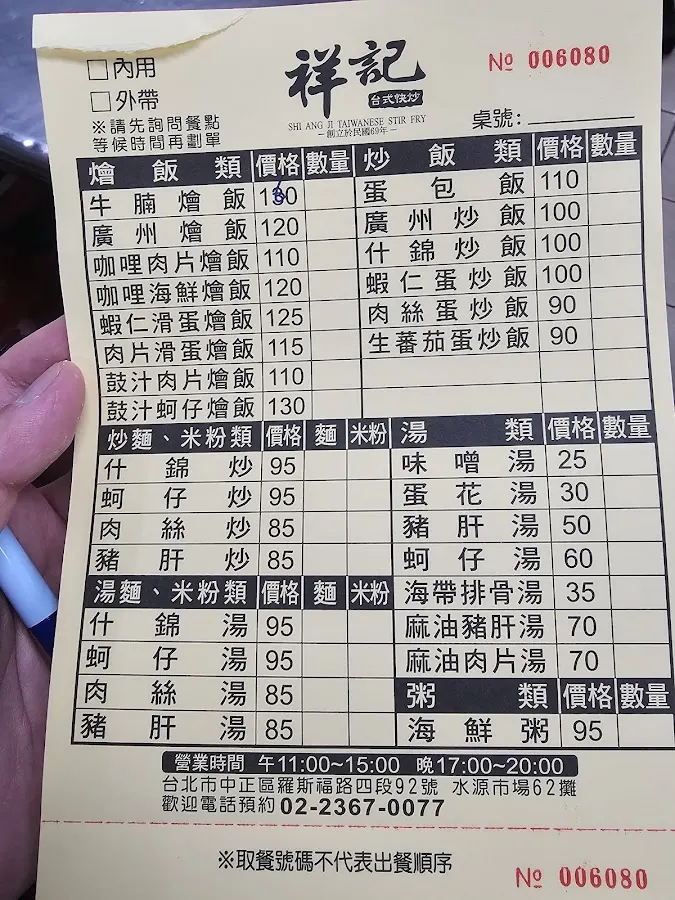 □內用
□外帶
※請先詢問餐點
等候時間再劃單
祥記
台式快炒
SHI ANG JI TAIWANESE STIR FRY
創立於民國69年
№ 006080
桌號:
燴飯類 價格 數量
牛腩燴飯
廣州燴飯 120
咖哩肉片燴飯 110
咖哩海鮮燴飯 120
蝦仁滑蛋燴飯 125
肉片滑蛋燴飯 115
鼓汁肉片燴飯 110
鼓汁蚵仔燴飯 130
炒飯類 價格 數量
蛋包飯 110
廣州炒飯 100
什錦炒飯 100
蝦仁蛋炒飯 100
肉絲蛋炒飯 90
生蕃茄蛋炒飯 90
炒麵、米粉類 價格 麵 米粉
什錦炒 95
蚵仔炒 95
肉絲炒 85
豬肝炒 85
湯麵、米粉類 價格 麵 米粉
什錦湯 95
蚵仔湯 95
肉絲湯 85
豬肝湯 85
湯類 價格 數量
味噌湯 25
蛋花湯 30
豬肝湯 50
蚵仔湯 60
海帶排骨湯 35
麻油豬肝湯 70
麻油肉片湯 70
粥類 價格 數量
海鮮粥 95
營業時間 午11:00~15:00 晚17:00~20:00
台北市中正區羅斯福路四段92號 水源市場62攤
歡迎電話預約 02-2367-0077
※取餐號碼不代表出餐順序
№ 006080